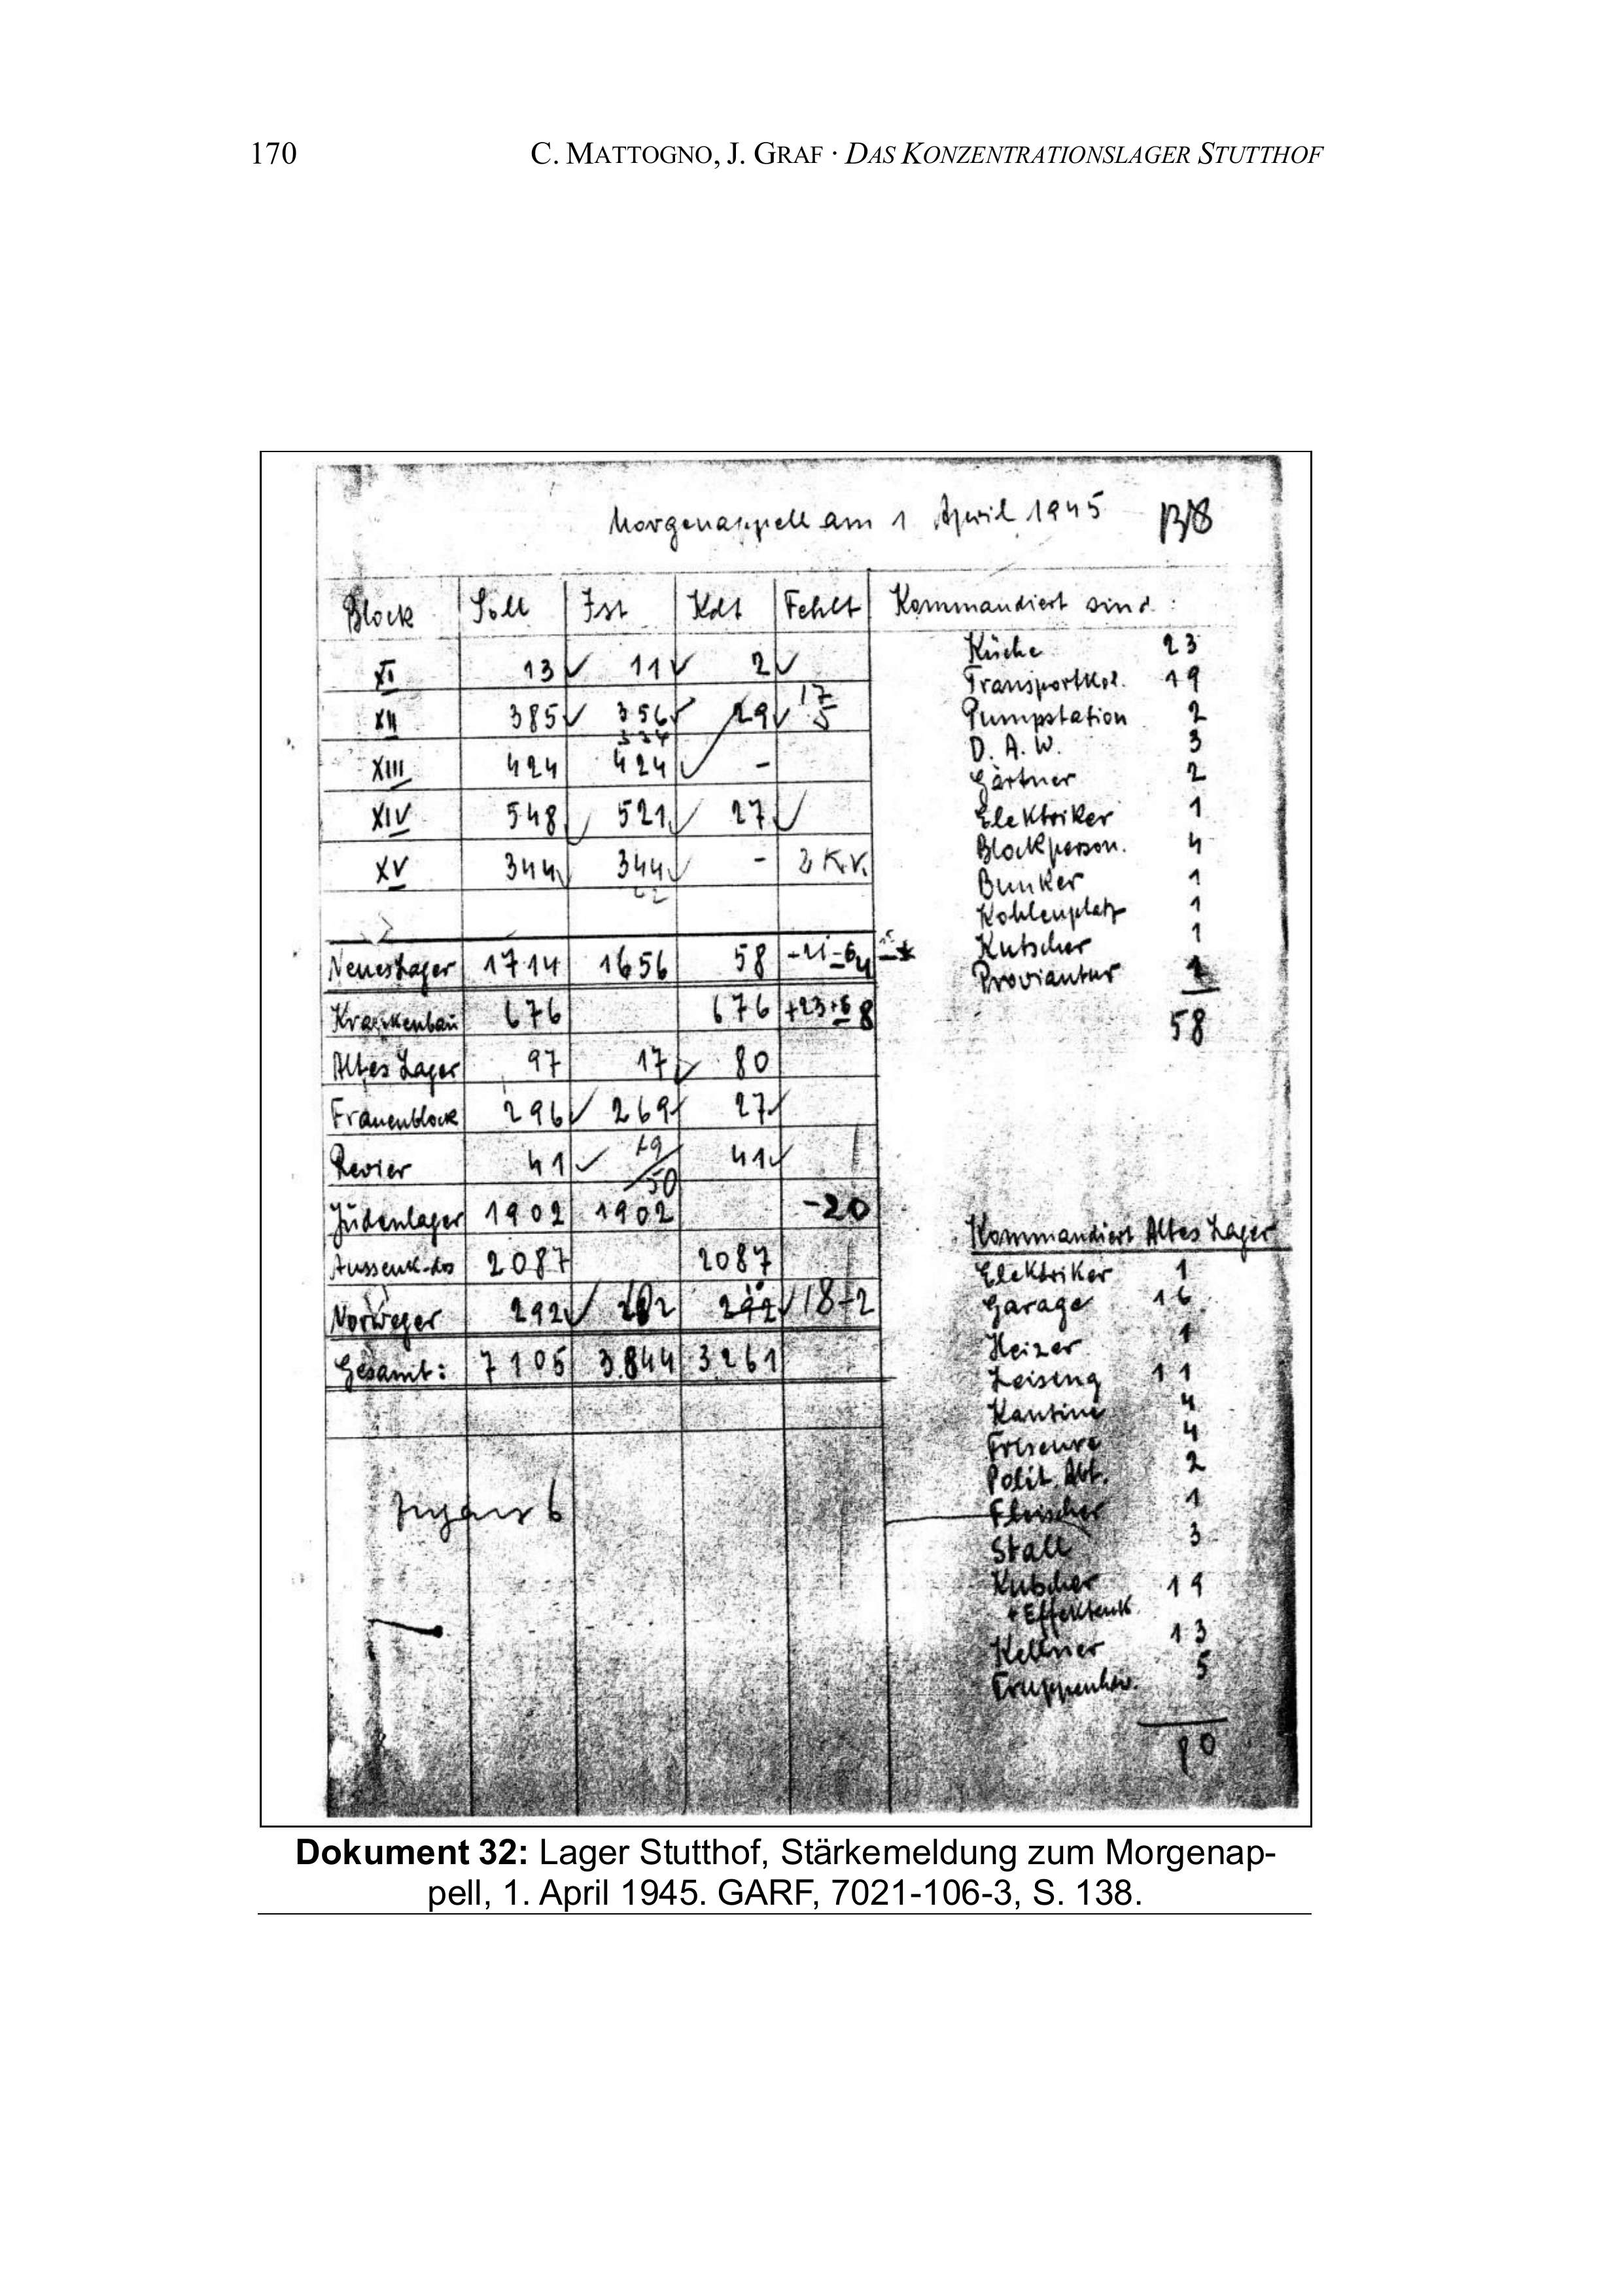 170 C. MATTOGNO, J. GRAF · DAS KONZENTRATIONSLAGER STUTTHOF
Morgenappell am 1 April 1945
Block Soll Ist Kdt Fehlt Kommandiert sind:
XI 13 11 2
XII 385 356 29 17 5
XIII 424 424 -
XIV 548 521 27
XV 344 344 - 2 K.V.
Neues Lager 1714 1656 58
Krankenbau 676 676
Altes Lager 97 17 80
Frauenblock 296 269 27
Revier 41 41
50
Judenlager 1902 1902 -20
Aussenk-dos 2087 2087
Norweger 292 292 18+2
Gesamt: 7105 3.844 3261
6
Küche 23
Transportkol. 19
Pumpstation 2
D. A. W. 3
Gärtner 2
Elektriker 1
Blockperson. 4
Bunker 1
Kohlenplatz 1
Kutscher 1
Proviantur 1
58
Kommandiert Altes Lager
Elektriker 1
Garage 16
Heizer 1
11
Kantine 4
Friseure 4
Polit. Abt. 2
Fleischer 1
Stall 3
Kutscher 19
+ Effektenk.
Kellner 13
5
80
Dokument 32: Lager Stutthof, Stärkemeldung zum Morgenap-
pell, 1. April 1945. GARF, 7021-106-3, S. 138.